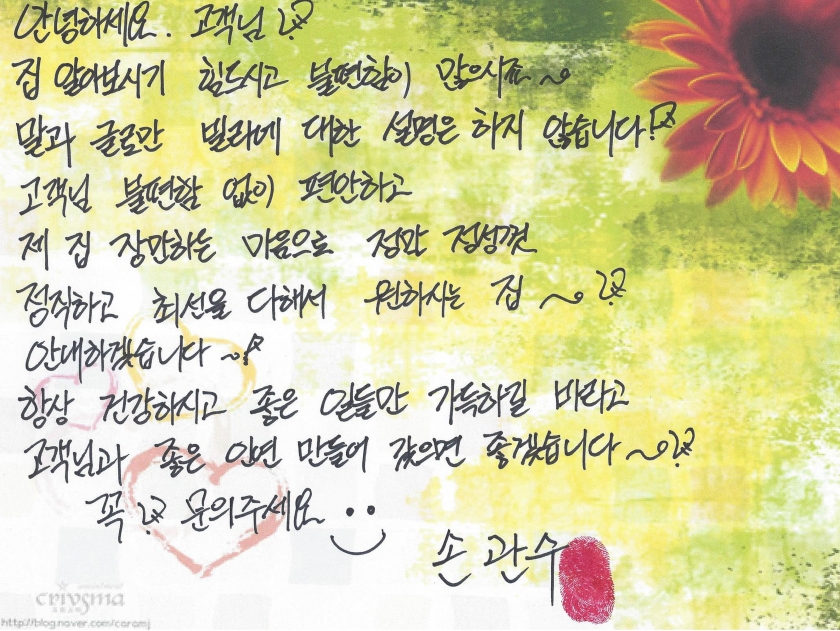 안녕하세요. 고객님
집 알아보시기 힘드시고 불편함이 많으시죠~
말과 글로만 빌라에 대한 설명은 하지 않습니다!
고객님 불편함 없이 편안하고
제 집 장만하는 마음으로 정말 정성껏
정직하고 최선을 다해서 원하시는 집 ~
안내하겠습니다 ~
항상 건강하시고 좋은 일들만 가득하길 바라고
고객님과 좋은 인연 만들어 갔으면 좋겠습니다 ~
꼭 문의주세요
손관수
crivsma
http://blog.naver.com/caramj